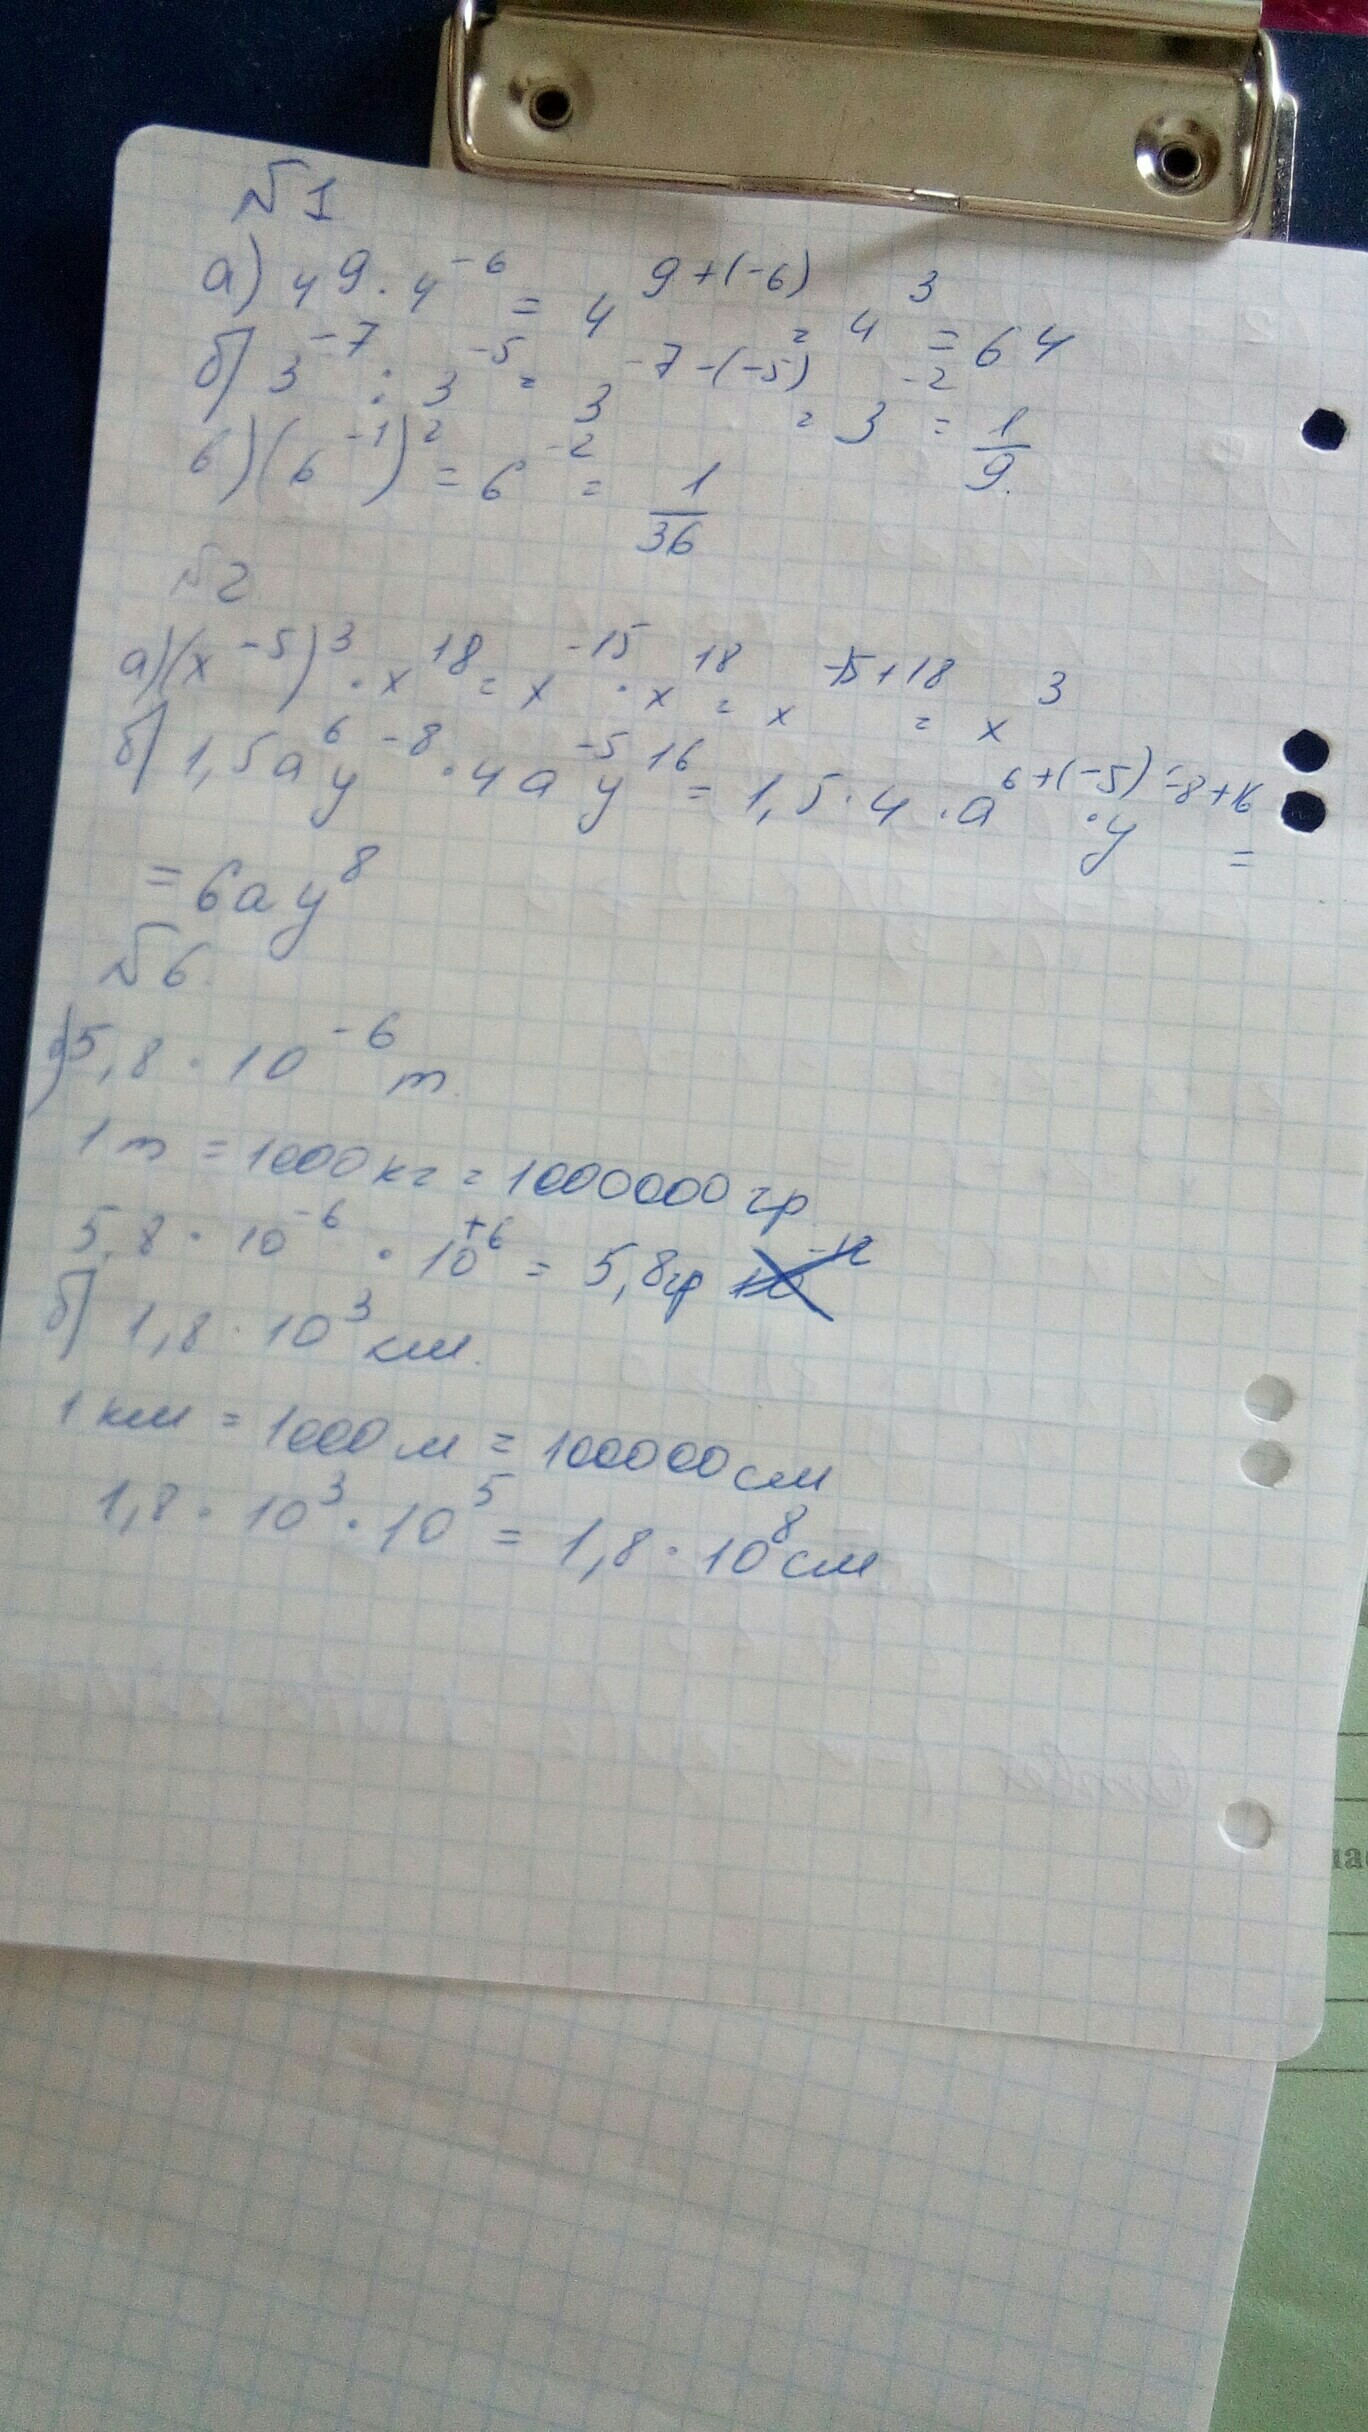 №1
а) 4⁹ · 4⁻⁶ = 4⁹⁺⁽⁻⁶⁾ = 4³ = 64
б) 3⁻⁷ : 3⁻⁵ = 3⁻⁷⁻⁽⁻⁵⁾ = 3⁻² = 1/9
в) (6⁻¹)² = 6⁻² = 1/36
№2
а) (x⁻⁵)³ · x¹⁸ = x⁻¹⁵ · x¹⁸ = x⁻¹⁵⁺¹⁸ = x³
б) 1,5a⁶y⁻⁸ · 4a⁻⁵y¹⁶ = 1,5 · 4 · a⁶⁺⁽⁻⁵⁾ · y⁻⁸⁺¹⁶ =
= 6ay⁸
№6
а) 5,8 · 10⁻⁶ т
1 т = 1000 кг = 1000000 гр
5,8 · 10⁻⁶ · 10⁺⁶ = 5,8 гр
б) 1,8 · 10³ км.
1 км = 1000 м = 100000 см
1,8 · 10³ · 10⁵ = 1,8 · 10⁸ см